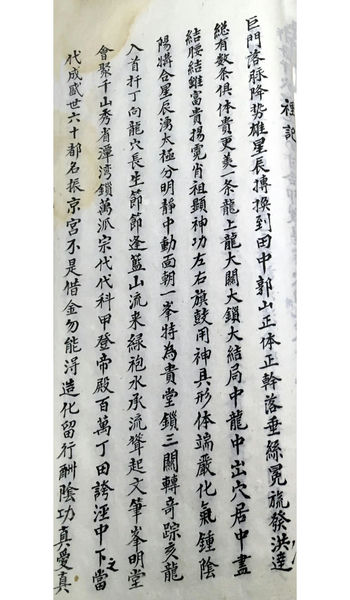 巨門落脉降势雄星辰摶換到田中郭山正体正幹落垂絲冕旒發洪達
総有数条俱体貴更美一条龍上龍大關大鎖大結局中龍中出穴居中盡
結腰結雖富貴揚寛肖祖顕神功左右旗鼓用神具形体端嚴化氣鍾陰
陽媾合星辰湧太極分明静中動面朝一峯特為貴堂鎖三關轉奇踪亥龍
入首扦丁向龍穴長生節節逢籃山流来緑袍水承流聳起文筆峯明堂
會聚千山秀省潭湾鎖萬派宗代代科甲登帝殿百萬丁田誇涇中下當
代成盛世六十都名振京宮不是借金勿能淂造化留行酬陰功真愛真